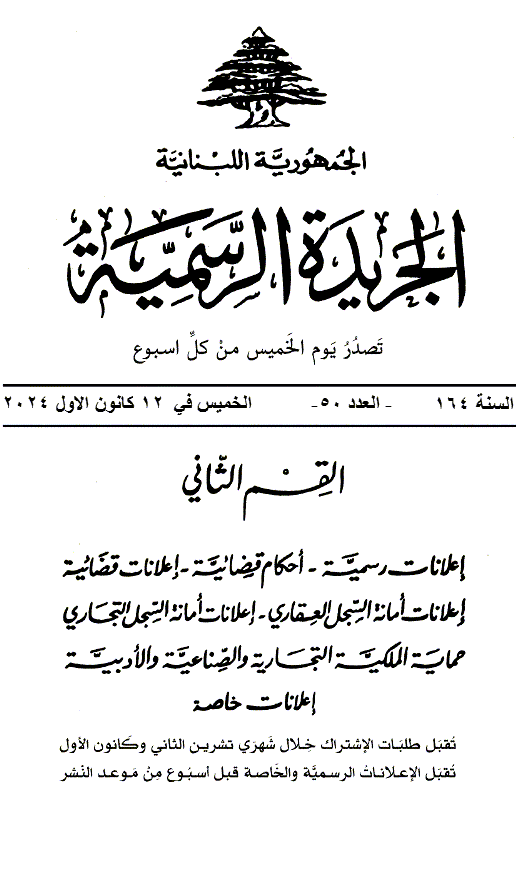 الجمهوريَّة اللبنانيَّة
الجَريدَة الرسَّميَّة
تَصدُرُ يَوم الخَميس منْ كلِّ اسبوع
السنة ١٦٤ - العدد ٥٠- الخميس في ١٢ كانون الاول ٢٠٢٤
القِسْم الثّاني
إعلانات رسميَّة - أحكام قضائيَّة - إعلانات قضائية
إعلانات أمانة السِّجل العقاري - إعلانات أمانة السِّجل التجاري
حماية الملكيَّة التجارية والصِّناعيَّة والأدبيَّة
إعلانات خاصة
تُقبَل طلبَات الإشتراك خِلال شَهرَي تشرين الثاني وكَانون الأول
تُقبَل الإعلاناتُ الرسميَّة والخَاصة قبل أسبُوع مِنْ مَوعد النَشر